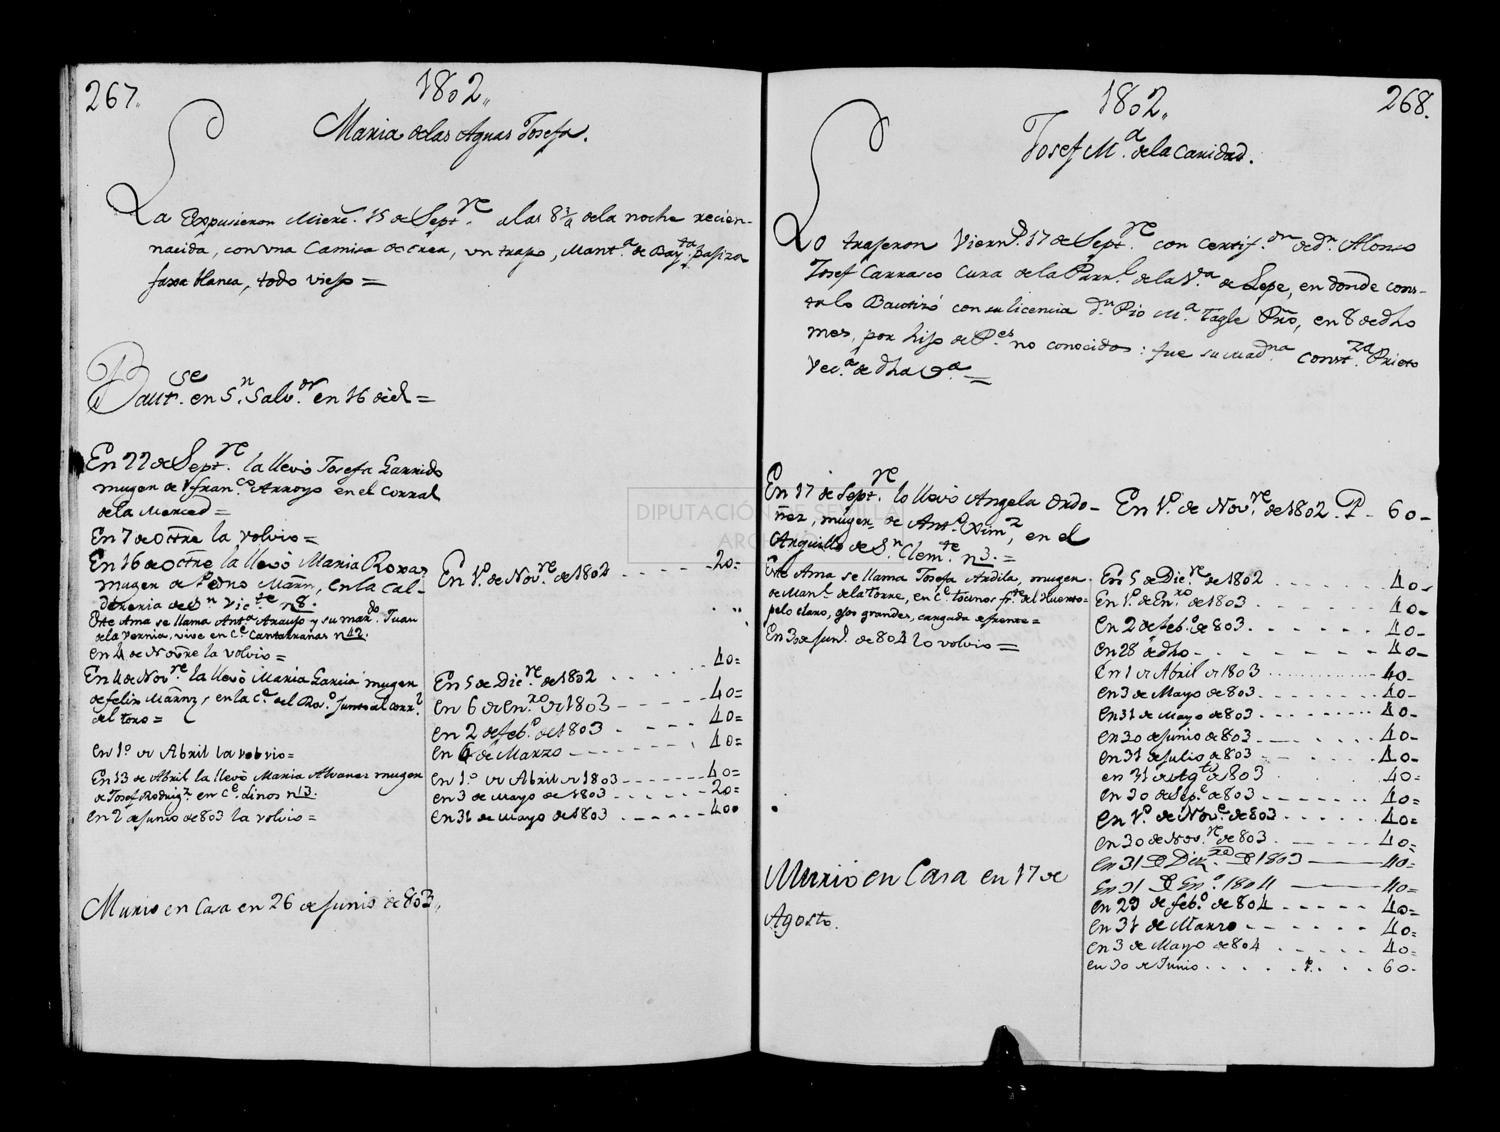 267.
1802.
Maria de las Aguas Josefa.
La Expusieron Mierc. 15 de Septre. a las 8 3/4 de la noche recien-
nacida, con una Camisa de crea, un trapo, Manta. de Bayta. Pafiza
faxa blanca, todo viejo =
Bautse. en Sn. Salvor. en 16 de el =
En 22 de Septre. la llevó Josefa Garrido
muger de Franco. Arroyo en el corral
de la Merced =
En 7 de Octre la volvio =
En 16 de Octre la llevó Maria Roxas
muger de Pedro Marn, en la Cal-
dereria de Sn Victe n 8.
Este Ama se llama Anta Araujo y su mardo. Juan
de la Vernia, vive en Ce. Cantarranas n 12.
en 4 de Novre la volvio =
En 4 de Novre. la llevó Maria Garcia muger
de felix Marnz, en la Ce. del Roso. junto al corrl.
del toro =
en 1º de Abril la volvio =
En 13 de Abril la llevó Maria Alvares muger
de Josef Rodrigz. en Ce. dinos n 13.
en 2 de junio de 803 la volvio =
Murio en Casa en 26 de Junio de 803.
En 1º. de Novre. de 1802 . . . . . 20=
40=
En 5 de Dicre. de 1802 . . . .
en 6 de Enro de 1803 - - - - 40=
en 2 de febo. de 1803 - - - - 40=
en 6 de Marzo - - - - - - 40=
en 1º. de Abril de 1803 - - - - 40=
en 3 de Mayo de 1803 - - - - 20=
en 31 de Mayo de 1803 - - - - 40=
1802.
268.
Josef Ma. de la Caridad.
Lo trajeron Viern. 17 de Septre. con certifon. de dn. Alonso
Josef Carrasco Cura de la Parrl. de la Va. de Lepe, en donde cons-
ta lo Bautizó con su licencia dn. Pio Ma. Tagle Pro, en 8 de dho
mes, por hijo de Pes. no conocidos: fue su Madna. Constza. Prieto
Veca. de dha Va. =
En 17 de Septre. lo llevó Angela Ordo-
ñez, muger de Anto. Ximz, en el
Arquillo de Sn. Clemte. n 3. =
Este Ama se llama Josefa Ardila, muger
de Manl. de la Torre, en Ce. tocinos frte. del Huerto =
pelo claro, ojos grandes, cargada de frente =
En 30 de Junl. de 804 lo volvio =
Murio en Casa en 17 de
Agosto.
En 1º. de Novre. de 1802. P - 60-
En 5 de Dicre. de 1802 . . . . . 40-
en 1º. de Enro de 1803 - - - - 40-
en 2 de febo. de 803 . - - - - 40-
en 28 de dho - - - - - - 40-
en 1 de Abril de 1803 . . . . . 40-
en 3 de Mayo de 803 . - - - - 40-
en 31 de Mayo de 803 . - - - - 40-
en 30 de junio de 803 . - - - - 40-
en 31 de julio de 803 . - - - - 40-
en 31 de Agto de 1803 . . . . . 40-
en 30 de Sepe. de 803 . . . . . 40=
en 1º. de Nove. de 803 . . . . . 40=
en 30 de Novre. de 803 . . . . . 40=
en 31 de Dize. de 1803 ——— 40=
en 31 de Eno. 1804 ——— 40=
en 29 de febo. de 804 - - - - 40=
en 31 de Marzo - - - - - 40=
en 3 de Mayo de 804 . - - - 40=
en 30 de Junio . . . . . P. . . . 60-
DIPUTACIÓN DE SEVILLA
ARCHIVO